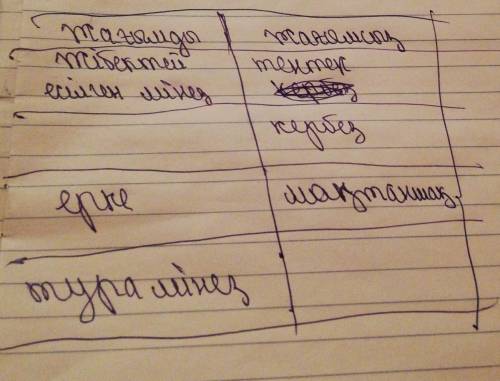 жағымды жағымсыз
жібектей тентек
есілген мінез
кербез
ерке мақтаншақ
тура мінез